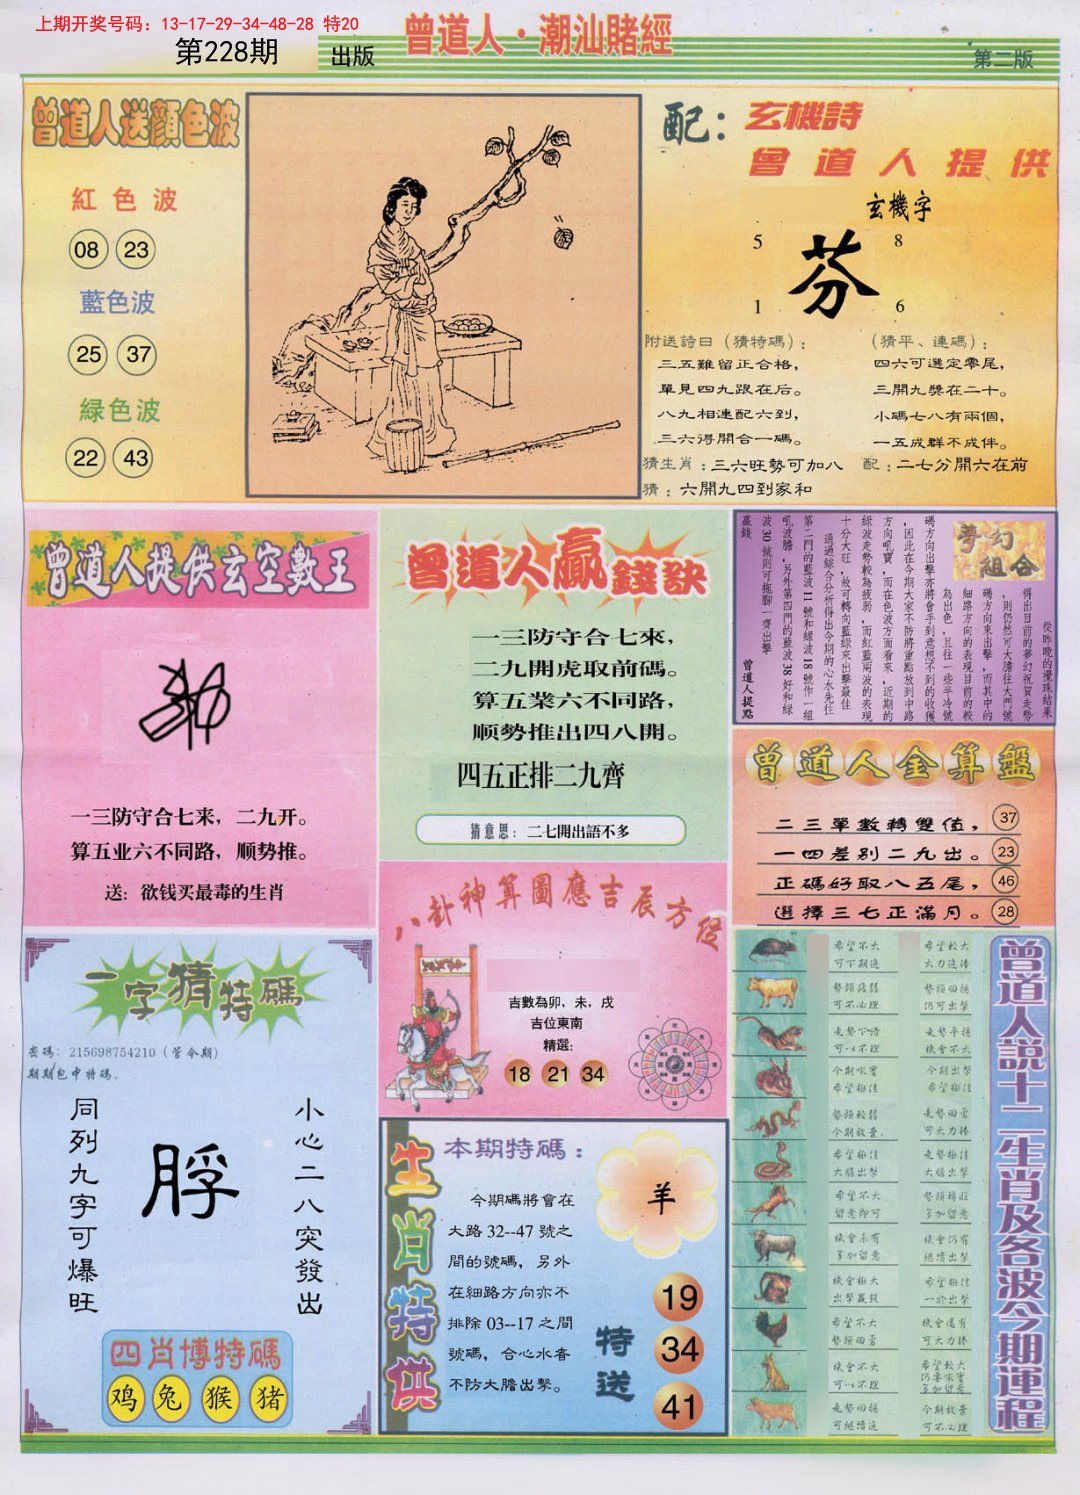 上期开奖号码：13-17-29-34-48-28 特20
第228期
出版
曾道人·潮汕賭經
第二版
曾道人送顏色波
紅色波
08 23
藍色波
25 37
緑色波
22 43
配：玄機詩
曾道人提供
玄機字
5 8
芬
1 6
附送詩曰（猜特碼）；
三五難留正合格，
單見四九跟在后。
八九相連配六到，
三六得開合一碼。
猜生肖：三六旺勢可加八
猜：六開九四到家和
（猜平、連碼）；
四六可選定零尾，
三開九獎在二十。
小碼七八有兩個，
一五成群不成伴。
配：二七分開六在前
曾道人提供玄空數王
一三防守合七来，二九开。
算五业六不同路，顺勢推。
送：欲钱买最毒的生肖
曾道人贏錢訣
一三防守合七來，
二九開虎取前碼。
算五業六不同路，
顺勢推出四八開。
四五正排二九齊
猜意思：二七開出語不多
夢幻組合
從昨晚的攪珠結果
得出目前的夢幻祝賀走勢
，則仍然可大膽往大門號
碼方向來出擊，而其中的
細路方向的表現目前的較
為出色，且往一些半冷號
碼方向出擊亦將會手到意想不到的收獲
，因此在今期大家不防將重點放到中路
方向吼寶，而在色波方面看來，近期的
綠波走勢較為疲弱，而紅藍兩波的表現
十分大旺，故可轉向藍綠來出擊最佳
通過綜合分析得出今期的心水先往
第二門的藍波11號和綠波18號作一組
吼波膽，另外第四門的藍波38好和綠
波30號則可拖腳一齊出擊
贏錢
曾道人提點
曾道人金算盤
二三單數轉雙值， 37
一四差别二九出。 23
正碼好取八五尾， 46
選擇三七正滿月。 28
八卦神算圖應吉辰方位
吉數為卯，未，戌
吉位東南
精選：
18 21 34
一字猜特碼
密碼：215698754210（管令期）
期期包中特碼。
同列九字可爆旺
脬
小心二八突發出
四肖博特碼
鸡 兔 猴 猪
生肖特供
本期特碼：
今期碼將會在
大路32--47號之
間的號碼，另外
在細路方向亦不
排除03--17之間
號碼，合心水者
不防大膽出擊。
羊
特送
19
34
41
曾道人說十二生肖及各波今期運程
希望不大 希望較大
可下期追 大力追捧
勢頭疲弱 勢頭回穩
可不必理 仍可出擊
走勢下滑 走勢平穩
可以不理 機會不大
今期吼寶 今期出擊
希望極佳 希望極佳
勢頭較弱 走勢回勇
今期放棄. 可大力捧
希望極佳 走勢極佳
大膽出擊 大膽出擊
希望不大 勢頭轉旺
留意即可 多加留意
機會未有 機會仍有
多加留意 繼續出擊
機會極大 希望極佳
出擊贏錢 一於出擊
希望不大 機會還有
勢頭回勇 可大力捧
機會不大 希望較大
可以不理 仍要吼寶
多加留意
走勢回穩 今期放棄
可繼續追 可不必理